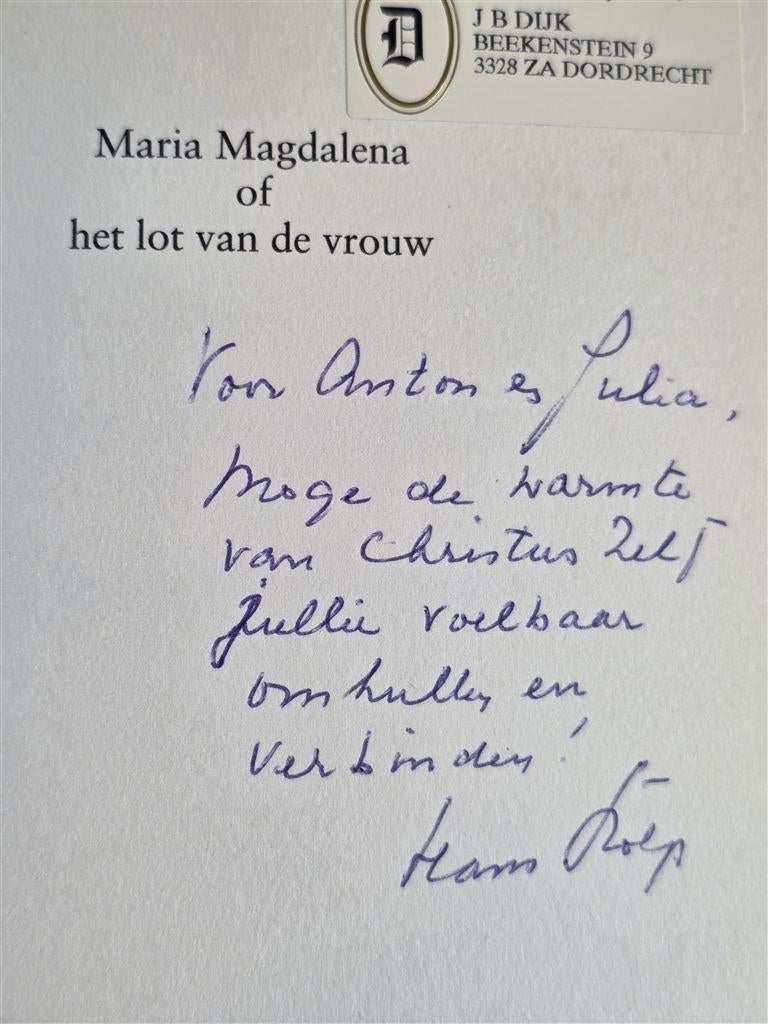 D
J B DIJK
BEEKENSTEIN 9
3328 ZA DORDRECHT
Maria Magdalena
of
het lot van de vrouw
Voor Anton en Julia,
Moge de warmte
van Christus Zelf
jullie voelbaar
omhullen en
verbinden!
Hans Stolp